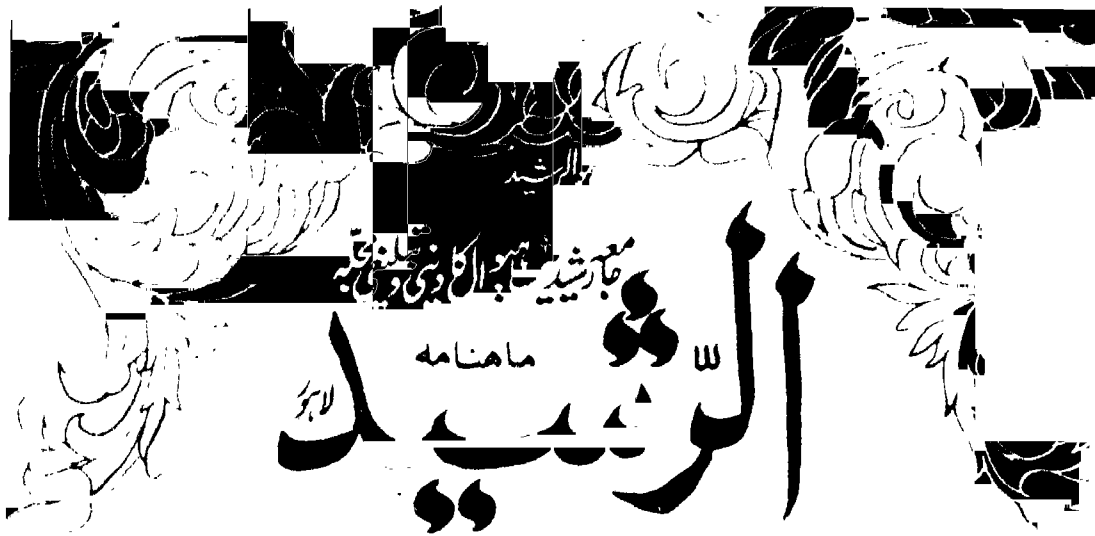 الرشید
جامعہ رشیدیہ ساہیوال کا دینی و تبلیغی مجلہ
ماهنامه
الرّشید
لاہور